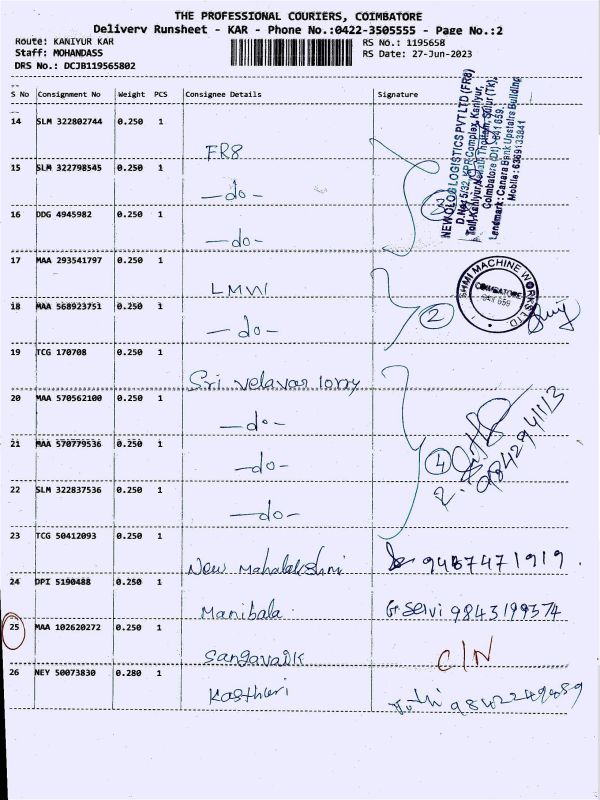 THE PROFESSIONAL COURIERS, COIMBATORE
Delivery Runsheet - KAR - Phone No.:0422-3505555 - Page No.:2
Route: KANIYUR KAR
RS No.: 1195658
Staff: MOHANDASS
RS Date: 27-Jun-2023
DRS No.: DCJB119565802
S No Consignment No Weight PCS Consignee Details Signature
14 SLM 322802744 0.250 1 FR8
15 SLM 322798545 0.250 1 -do-
16 DDG 4945982 0.250 1 -do-
NEWOLOG LOGISTICS PVT LTD (FR8)
D.No: 5/32, KPR Complex, Kaniyur,
Coimbatore (Dt) - 641 659.
Landmark: Canara Bank Upstairs Building
Mobile: 6369133841
17 MAA 293541797 0.250 1 LMW
18 MAA 568923751 0.250 1 -do- 2
MACHINE WORKS LTD.
COIMBATORE
19 TCG 170708 0.250 1 Sri velavar lorry
20 MAA 570562100 0.250 1 -do-
21 MAA 570779536 0.250 1 -do- 4
9842941113
22 SLM 322837536 0.250 1 -do-
23 TCG 50412093 0.250 1 New Mahalakshmi 9487471919.
24 DPI 5190488 0.250 1 Manibala G. Selvi 9843199574
25 MAA 102620272 0.250 1 C/N
26 NEY 50073830 0.280 1 Kasthuri